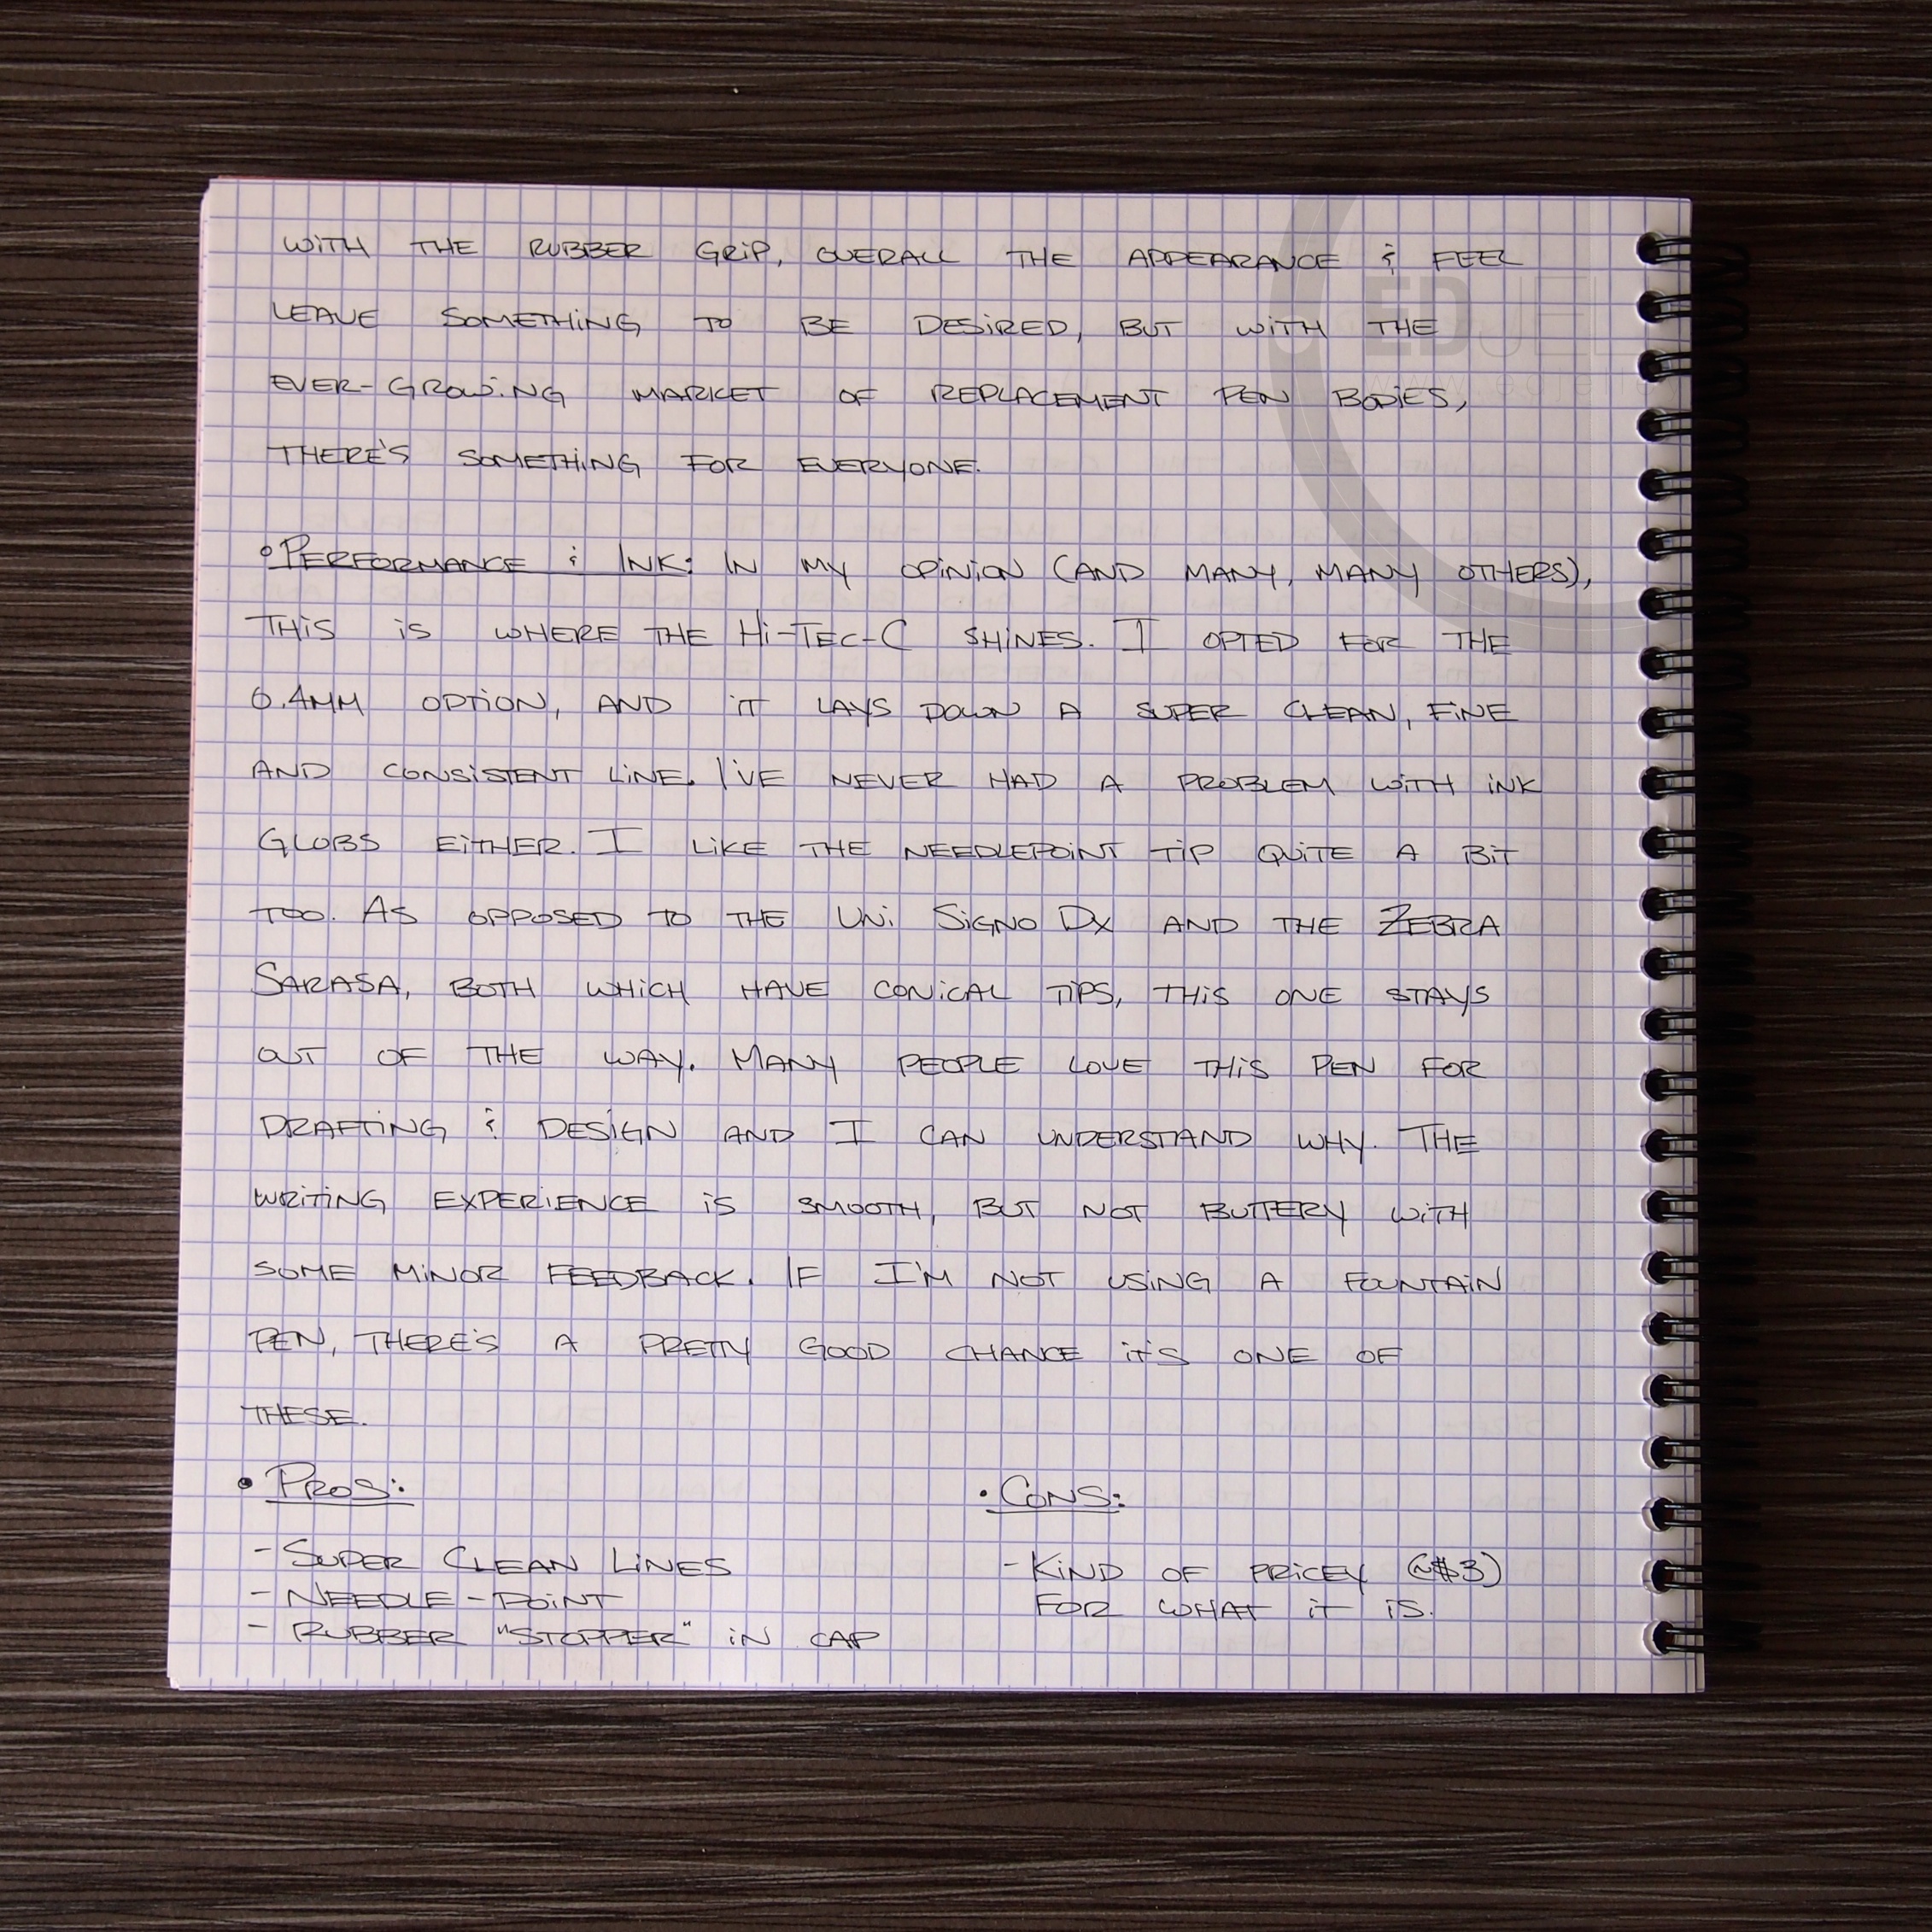 WiTH THE RUBBER GRiP, OVERALL THE APPEARANCE & FEEL
LEAVE SOMETHiNG TO BE DESiRED, BUT WiTH THE
EVER-GROWiNG MARKET OF REPLACEMENT PEN BODiES,
THERE'S SOMETHiNG FOR EVERYONE.
• PERFORMANCE & INK: IN MY OPiNiON (AND MANY, MANY OTHERS),
THiS iS WHERE THE Hi-TEC-C SHiNES. I OPTED FOR THE
0.4MM OPTiON, AND iT LAYS DOWN A SUPER CLEAN, FiNE
AND CONSiSTENT LiNE. I'VE NEVER HAD A PROBLEM WiTH iNK
GLOBS EiTHER. I LiKE THE NEEDLEPOiNT TiP QUiTE A BiT
TOO. AS OPPOSED TO THE UNi SiGNO DX AND THE ZEBRA
SARASA, BOTH WHiCH HAVE CONiCAL TiPS, THiS ONE STAYS
OUT OF THE WAY. MANY PEOPLE LOVE THiS PEN FOR
DRAFTiNG & DESiGN AND I CAN UNDERSTAND WHY. THE
WRiTiNG EXPERiENCE iS SMOOTH, BUT NOT BUTTERY WiTH
SOME MiNOR FEEDBACK. IF I'M NOT USiNG A FOUNTAiN
PEN, THERE'S A PRETTY GOOD CHANCE iT'S ONE OF
THESE.
• PROS:
- SUPER CLEAN LiNES
- NEEDLE-POiNT
- RUBBER "STOPPER" iN CAP
• CONS:
- KiND OF PRiCEY (~$3)
FOR WHAT iT iS.